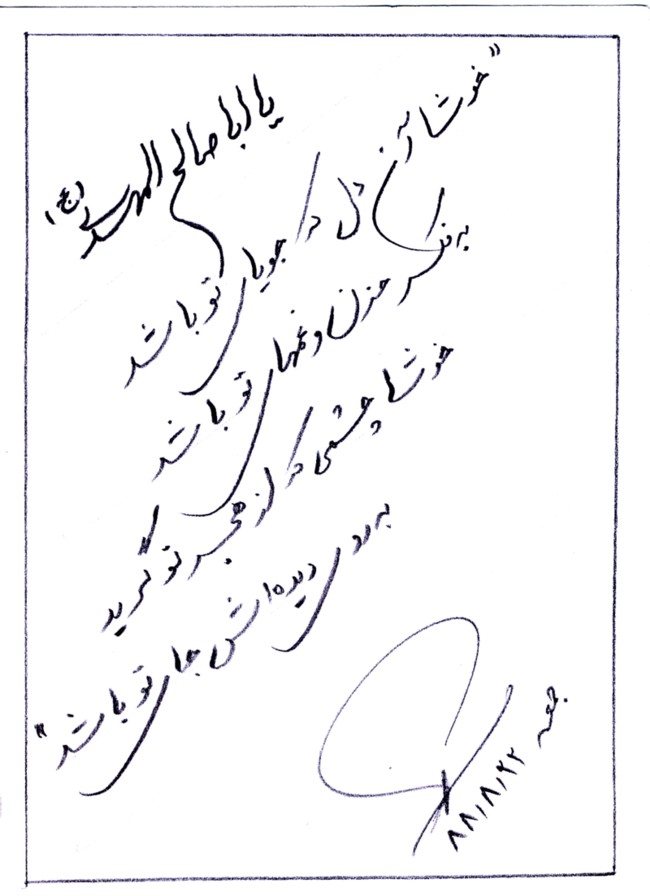 یا اباصالح المهدی (عج)
"خوشا آن دل که جویای تو باشد
به فکر حزن و غمهای تو باشد
خوشا چشمی که از هجر تو گرید
به روی دیده‌اش جای تو باشد"
جمعه
۸۸,۸,۲۲